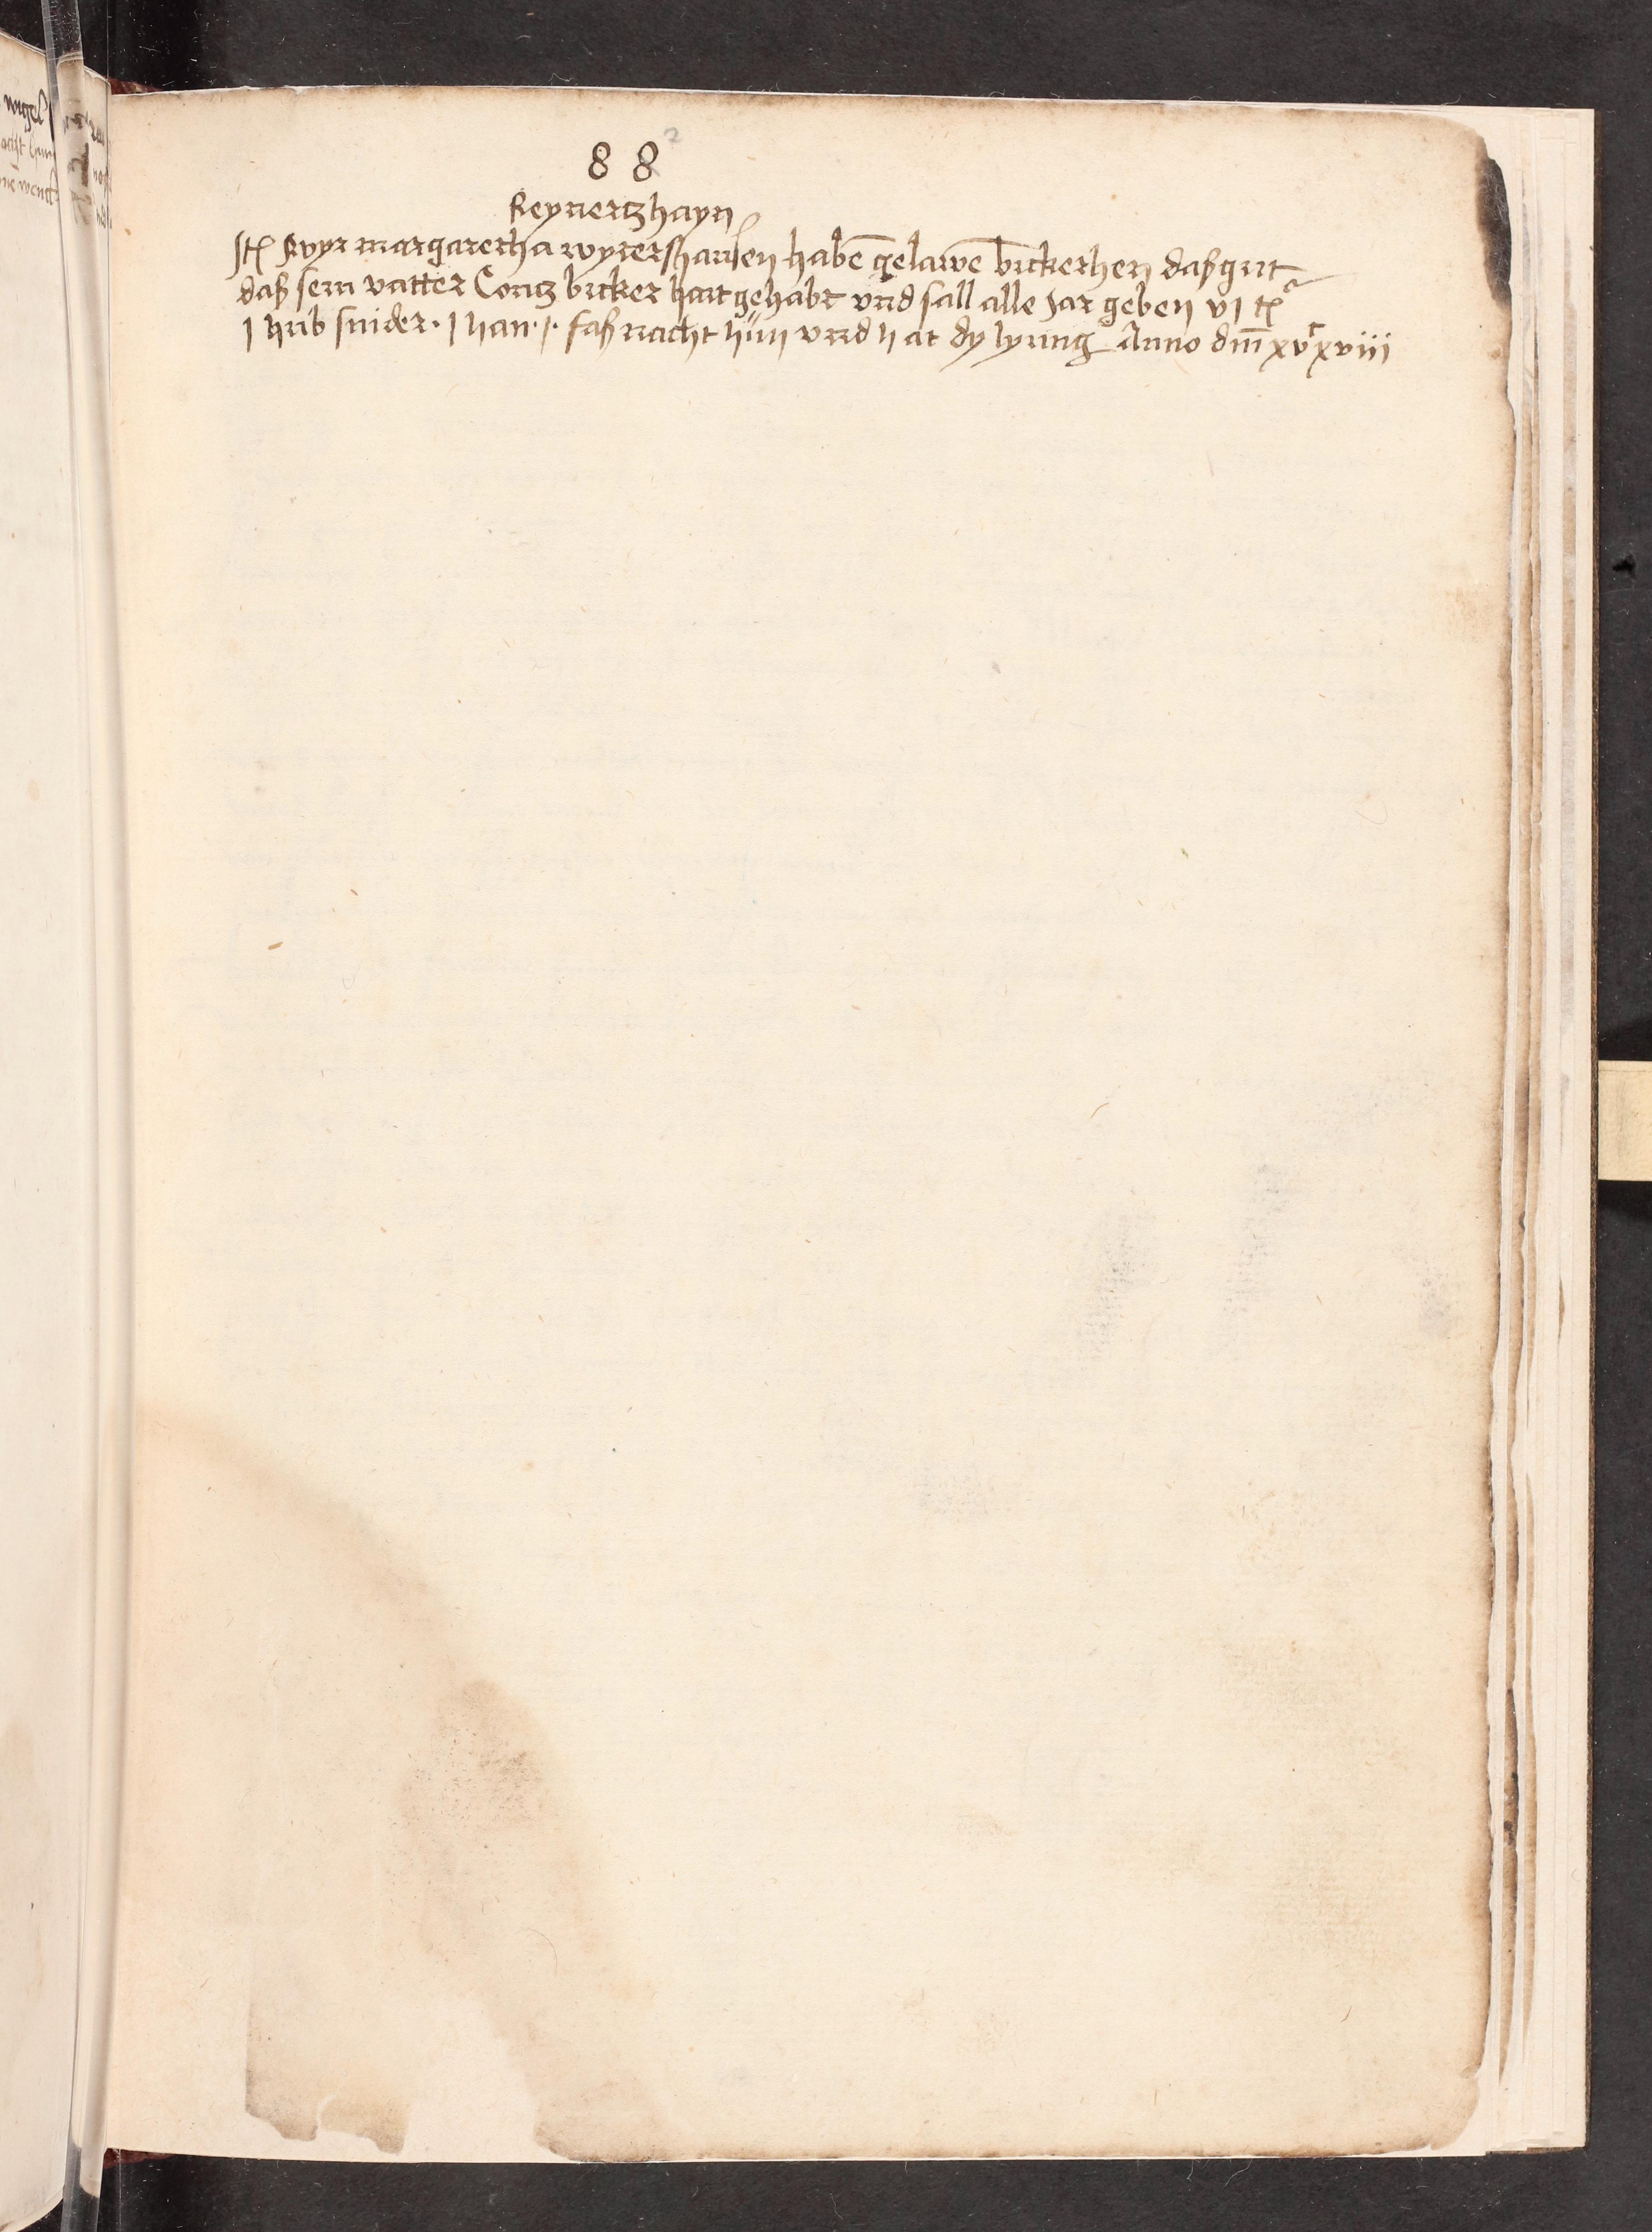 8 8 2
Reynertzhayn
Jtem wyr margaretha wytershausen habē gelawē bickerhen daß gut
daß sein vatter Contz bicker hait gehabt vnd sall alle jar geben vj
j hub snider · j han · j · faßnacht hün vnd hat dy lyung Anno dm̄ xvᶜxviii